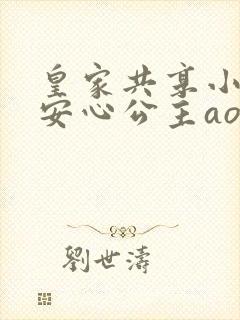 皇家共享小
安心公主ao
劉世濤